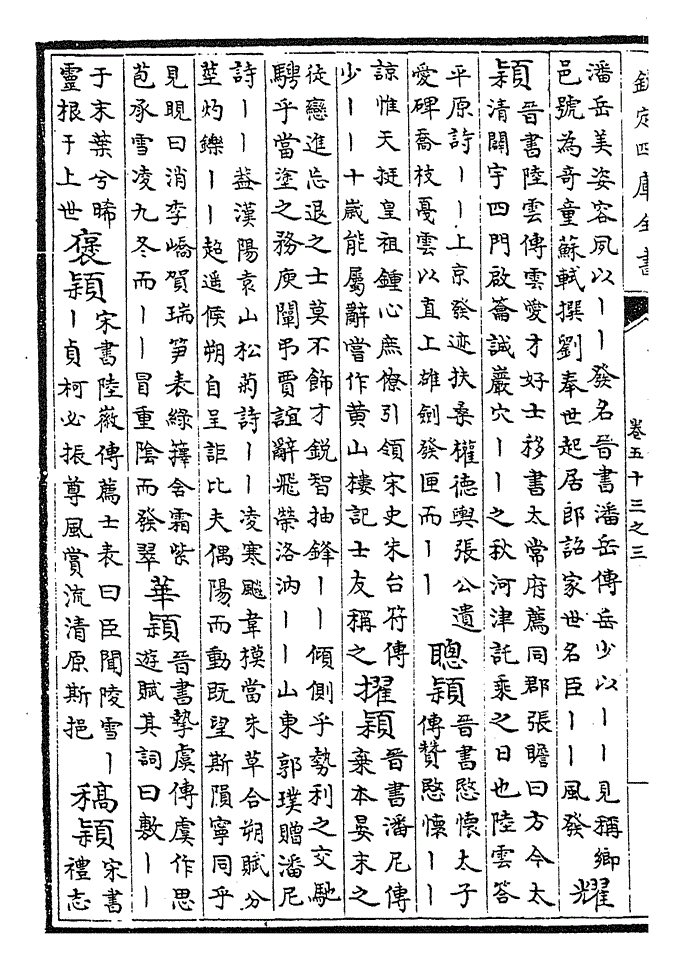 欽定四庫全書
卷五十三之三
潘岳美姿容夙以丨丨發名晉書潘岳傳岳少以丨丨見稱鄉
邑號為奇童蘇軾撰劉奉世起居郎詔家世名臣丨丨風發
耀
穎
晉書陸雲傳雲愛才好士移書太常府薦同郡張瞻曰方今太
清闢宇四門啟籥誠巖穴丨丨之秋河津託乘之日也陸雲答
平原詩丨丨上京發迹扶桑權德輿張公遺
愛碑喬枝戞雲以直上雄劍發匣而丨丨
聰穎
晉書愍懷太子
傳贊愍懷丨丨
諒惟天挺皇祖鍾心庶僚引領宋史朱台符傳
少丨丨十歲能屬辭嘗作黄山樓記士友稱之
擢穎
晉書潘尼傳
棄本晏末之
徒戀進忘退之士莫不飾才銳智抽鋒丨丨傾側乎勢利之交馳
騁乎當塗之務庾闡弔賈誼辭飛榮洛汭丨丨山東郭璞贈潘尼
詩丨丨益漢陽袁山松菊詩丨丨凌寒飈韋模當朱草合朔賦分
莖灼鑠丨丨超遥候朔自呈詎比夫偶陽而動既望斯隕寧同乎
見晛曰消李嶠賀瑞笋表綠籜含霜紫
苞承雪凌九冬而丨丨冒重陰而發翠
華穎
晉書摯虞傳虞作思
遊賦其詞曰敷丨丨
于末葉兮晞
靈根于上世
褒穎
宋書陸徽傳薦士表曰臣聞陵雪丨
丨貞柯必振尊風賞流清原斯挹
稿穎
宋書
禮志